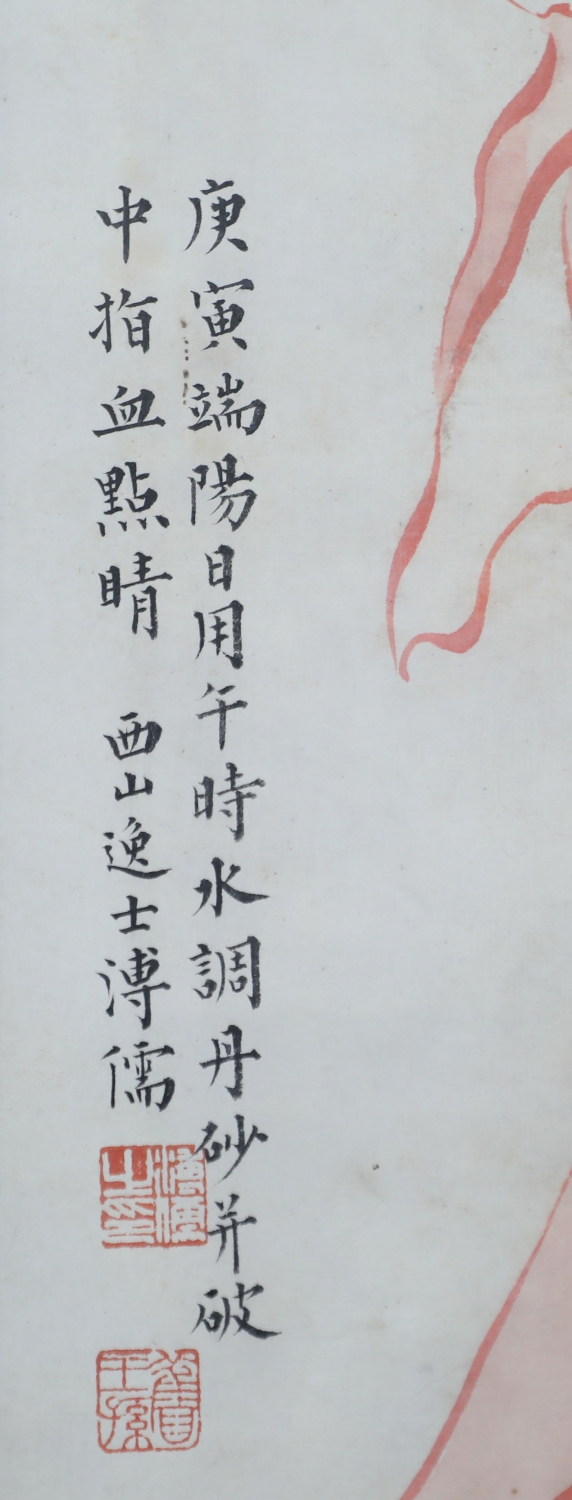 庚寅端陽日用午時水調丹砂并破
中指血點睛 西山逸士溥儒
溥儒之印
舊王孫